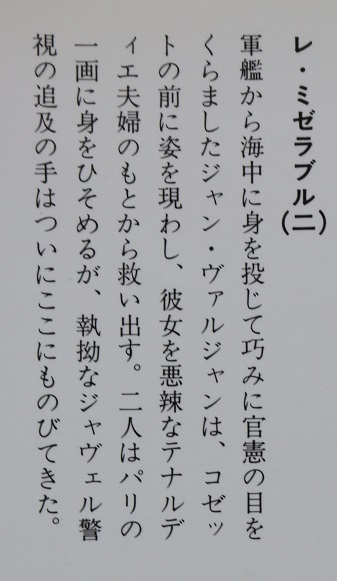 レ・ミゼラブル(二)
軍艦から海中に身を投じて巧みに官憲の目を
くらましたジャン・ヴァルジャンは、コゼッ
トの前に姿を現わし、彼女を悪辣なテナルデ
ィエ夫婦のもとから救い出す。二人はパリの
一画に身をひそめるが、執拗なジャヴェル警
視の追及の手はついにここにものびてきた。